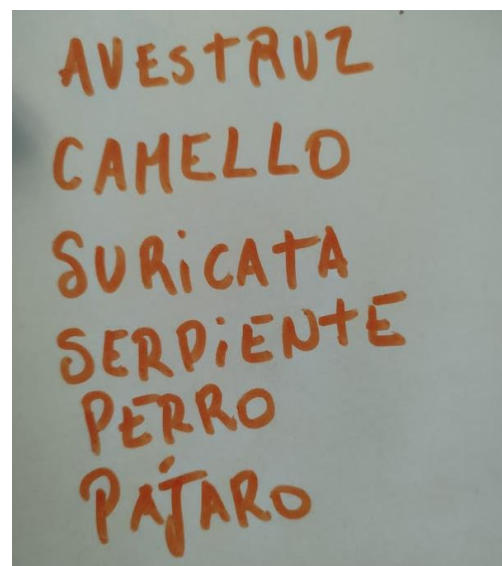 AVESTRUZ
CAMELLO
SURiCATA
SERPiENTE
PERRO
PÁJARO